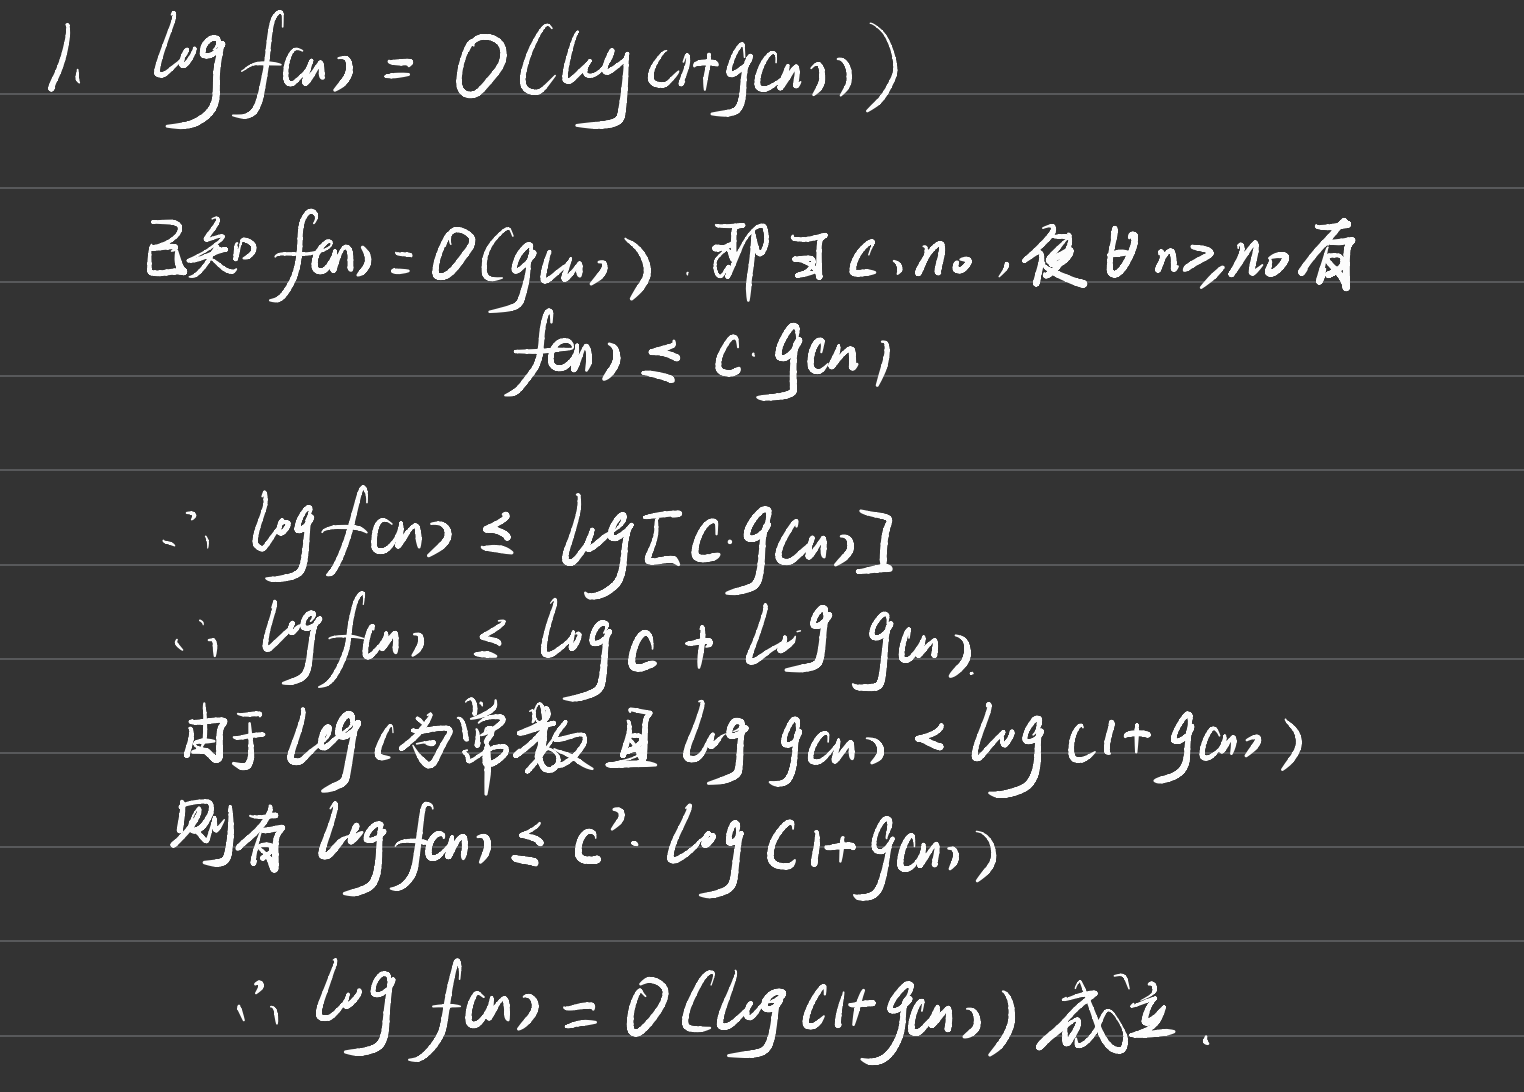 1. log f(n) = O(log(1+g(n)))
已知 f(n) = O(g(n)). 即∃ c, n₀, 使∀n≥n₀有
f(n) ≤ c·g(n)
∴ log f(n) ≤ log[c·g(n)]
∴ log f(n) ≤ log c + log g(n).
由于 log c 为常数且 log g(n) < log(1+g(n))
则有 log f(n) ≤ c'·log(1+g(n))
∴ log f(n) = O(log(1+g(n))) 成立.